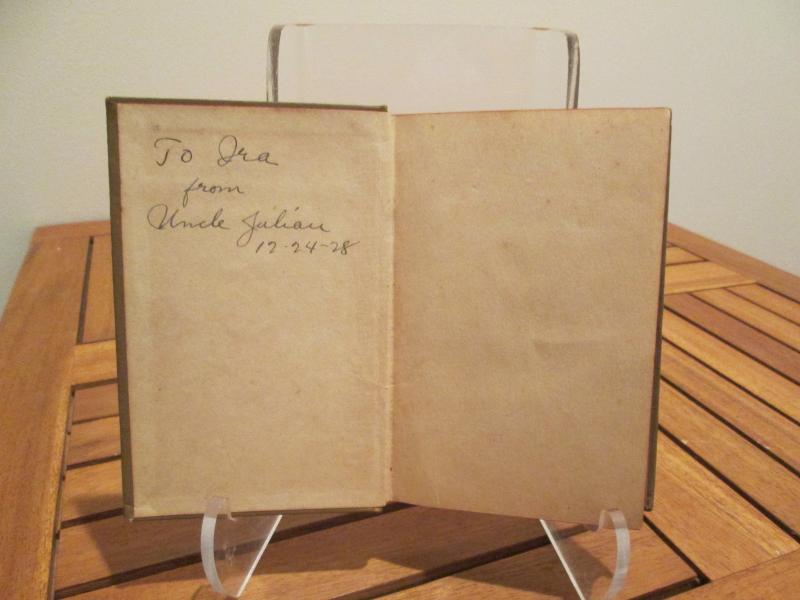 To Ira
from
Uncle Julian
12-24-28